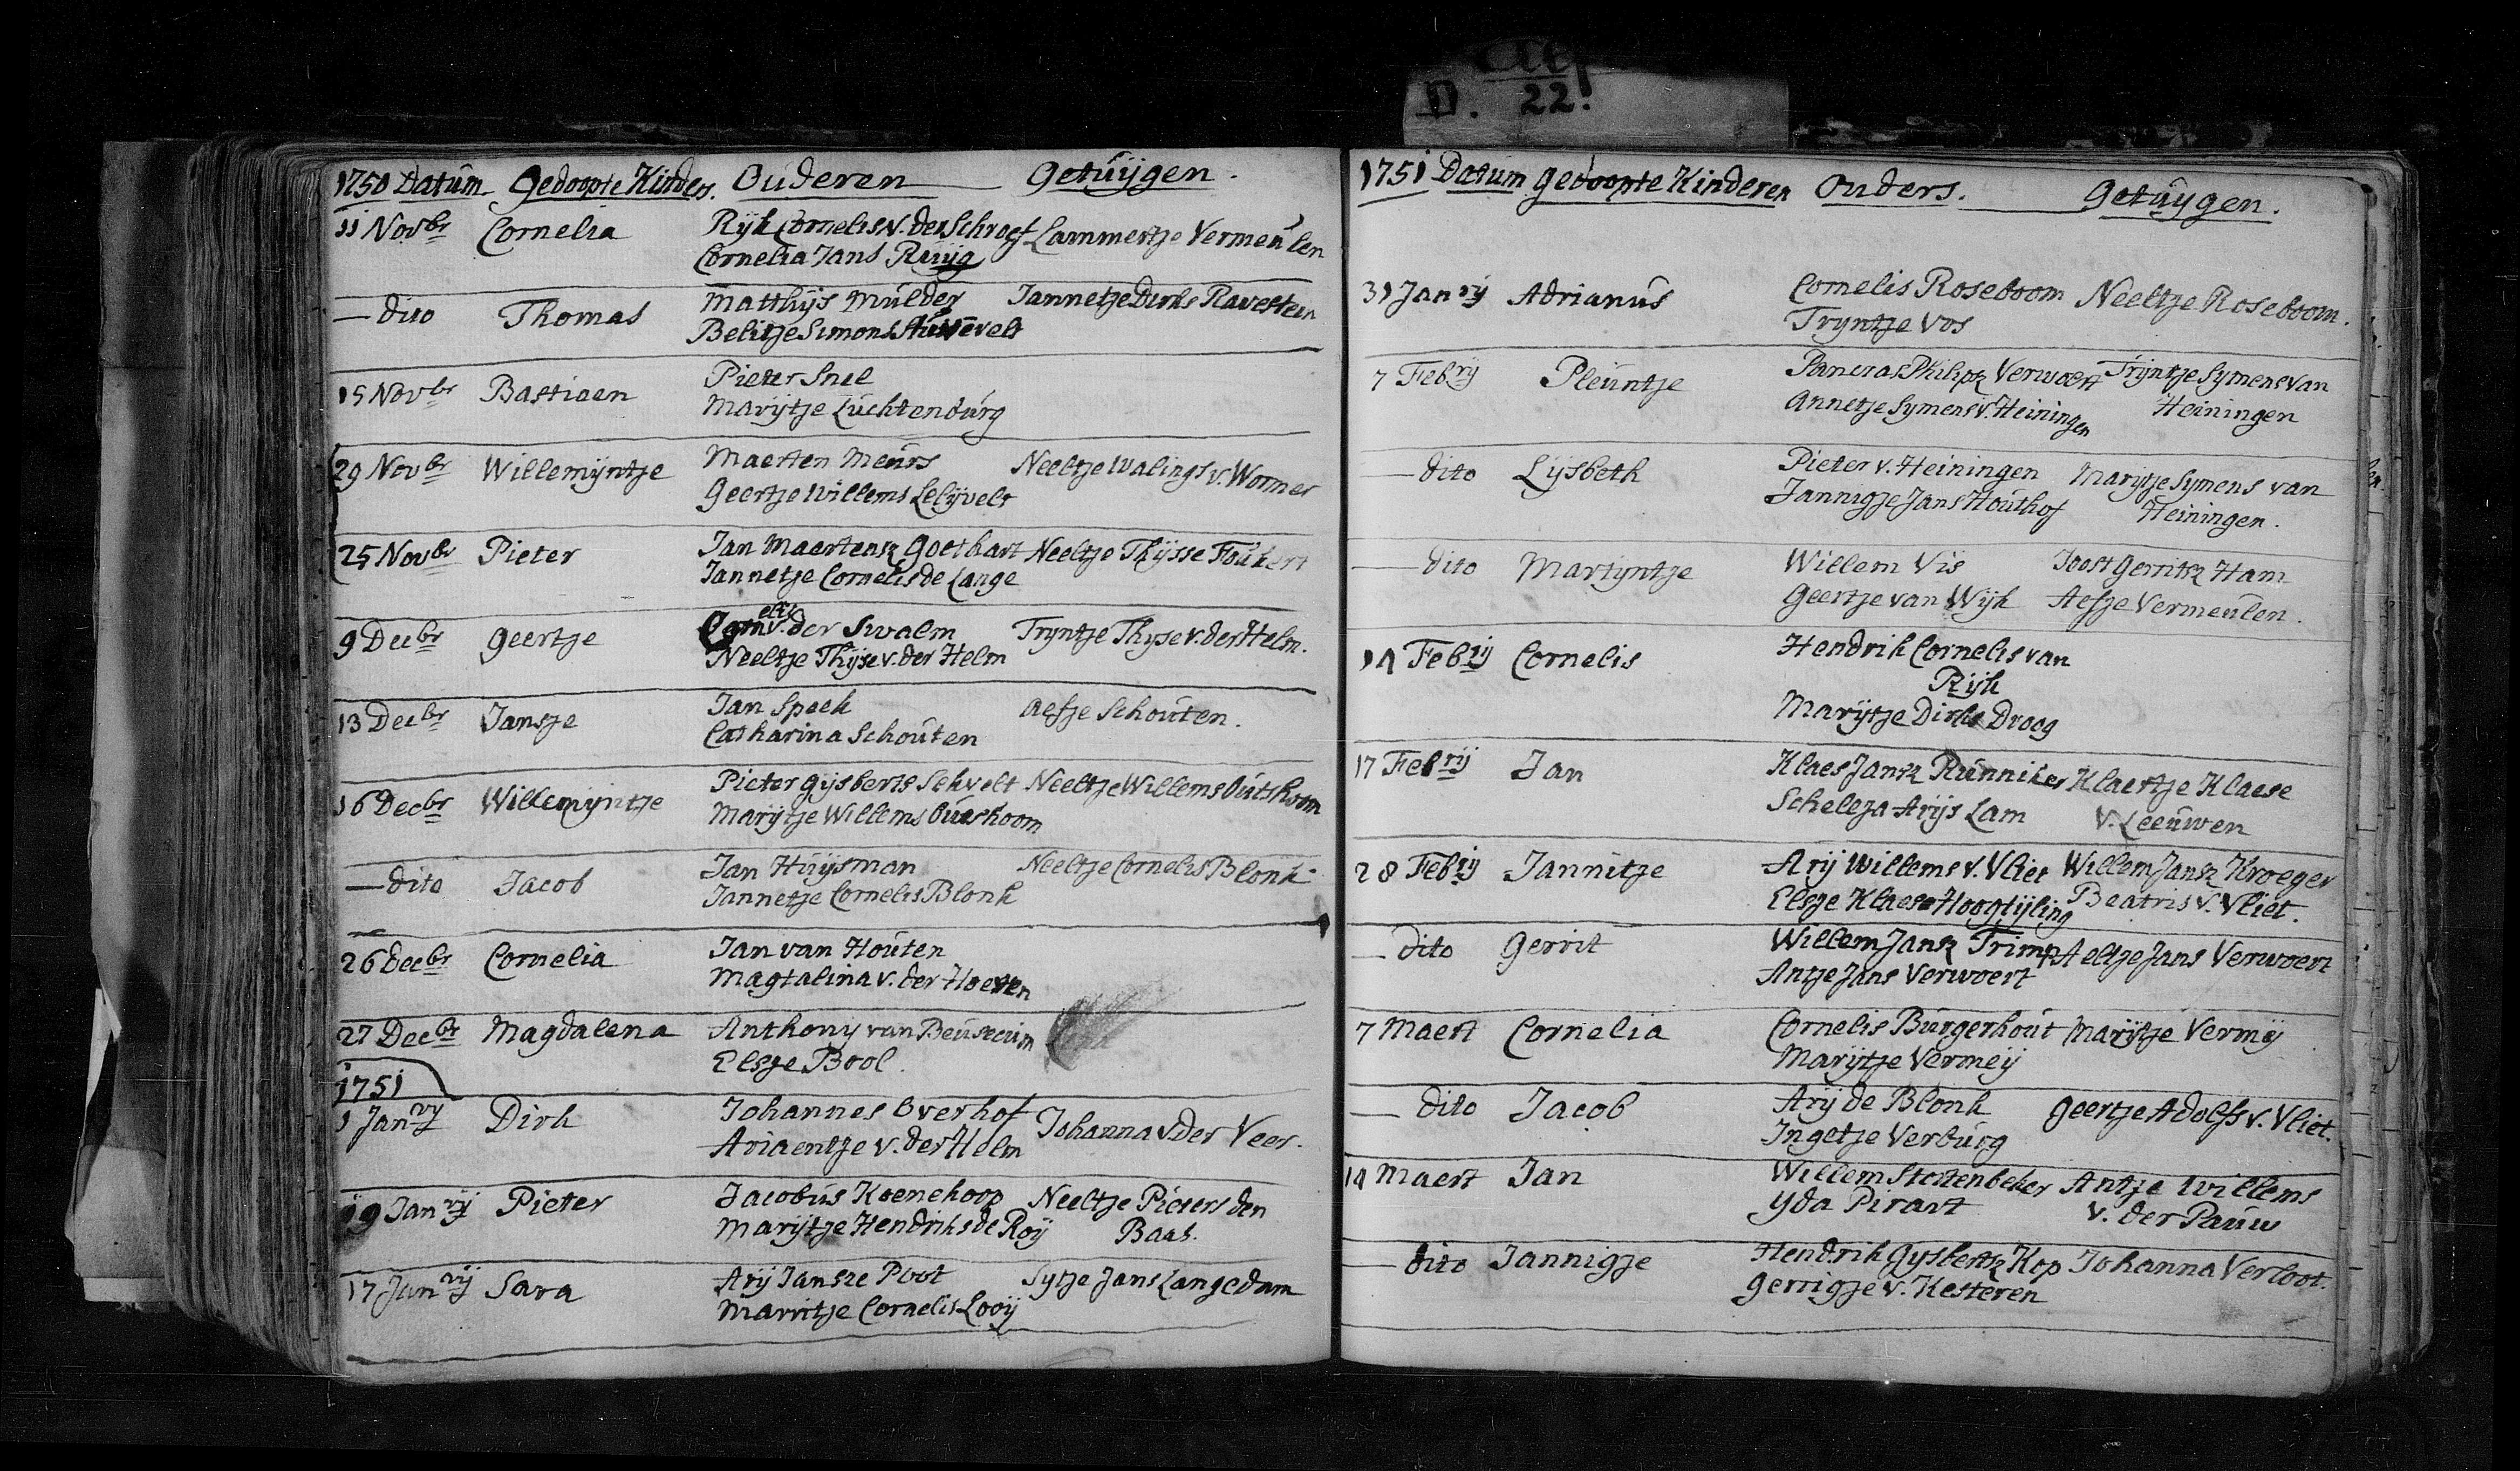 D. 22!
1750 Datum Gedoopte Kinders. Ouderen Getuijgen.
11 Novbr Cornelia Rijk Cornelis v. der Schroef Lammertje Vermeulen
Cornelia Jans Ruijg
— dito Thomas Matthijs Mulder Jannetje Dirks Ravesteen
Belitje Simons
15 Novbr Bastiaen Pieter Snel
Marijtje Luchtenburg
29 Novbr Willemijntje Maerten Meurs Neeltje Walings v. Wormer
Geertje Willems Lelijvelt
25 Novbr Pieter Jan Maertensz Goethart Neeltje Thijsse Foukert
Jannetje Cornelis de Lange
9 Decbr Geertje Cornelis v. der Swalm Tryntje Thyse v. der Helm.
Neeltje Thijse v. der Helm
13 Decbr Jansje Jan Speck Aefje Schouten.
Catharina Schouten
16 Decbr Willemijntje Pieter Gijsberts Schvelt Neeltje Willems Outshoorn
Marijtje Willems
— dito Jacob Jan Huijsman Neeltje Cornelis Blonk
Jannetje Cornelis Blonk
26 Decbr Cornelia Jan van Houten
Magtalina v. der Hoeven
27 Decbr Magdalena Anthony van Beusecum
Elsje Bool.
1751
1 Janry Dirk Johannes Overhof Johanna v der Veer.
Ariaentje v. der Helm
10 Janrij Pieter Jacobus Koenekoop Neeltje Pieters den
Marijtje Hendriks de Roij Baas.
17 Janrij Sara Arij Jansze Poot Sytje Jans Langedam
Marritje Cornelis Looij
1751 Datum gedoopte Kinderen Ouders. Getuygen.
31 Janrij Adrianus Cornelis Roseboom Neeltje Roseboom.
Tryntje Vos
7 Febrij Pleuntje Pancras Philipsz Verwoert Trijntje Symens van
Annetje Symens v. Heiningen Heiningen
— dito Lijsbeth Pieter v. Heiningen Marijtje Symens van
Jannigje Jans Houthof Heiningen.
— dito Martijntje Willem Vis Joost Gerritsz Ham
Geertje van Wijk Aefje Vermeulen.
14 Febrij Cornelis Hendrik Cornelis van
Rijk
Marijtje Dirks Droog
17 Febrij Jan Klaes Jansz Runniker Klaertje Klaese
Scheleza Arijs Lam v. Leeuwen
28 Febrij Jannitje Arij Willems v. Vliet Willem Jansz Kroeger
Elsje Klaese Hoogtijling Beatris v. Vliet.
— dito Gerrit Willem Jansz Trimp Aeltje Jans Verwoert
Antje Jans Verwoert
7 Maert Cornelia Cornelis Burgerhout Marijtje Vermij
Marijtje Vermeij
— dito Jacob Arij de Blonk Geertje Adolfs v. Vliet.
Ingetje Verburg
14 Maert Jan Willem Stortenbeker Antje Willems
Yda Pirart v. der Pauw
— dito Jannigje Hendrik Gysbertsz Kop Johanna Verloot.
Gerrigje v. Kesteren